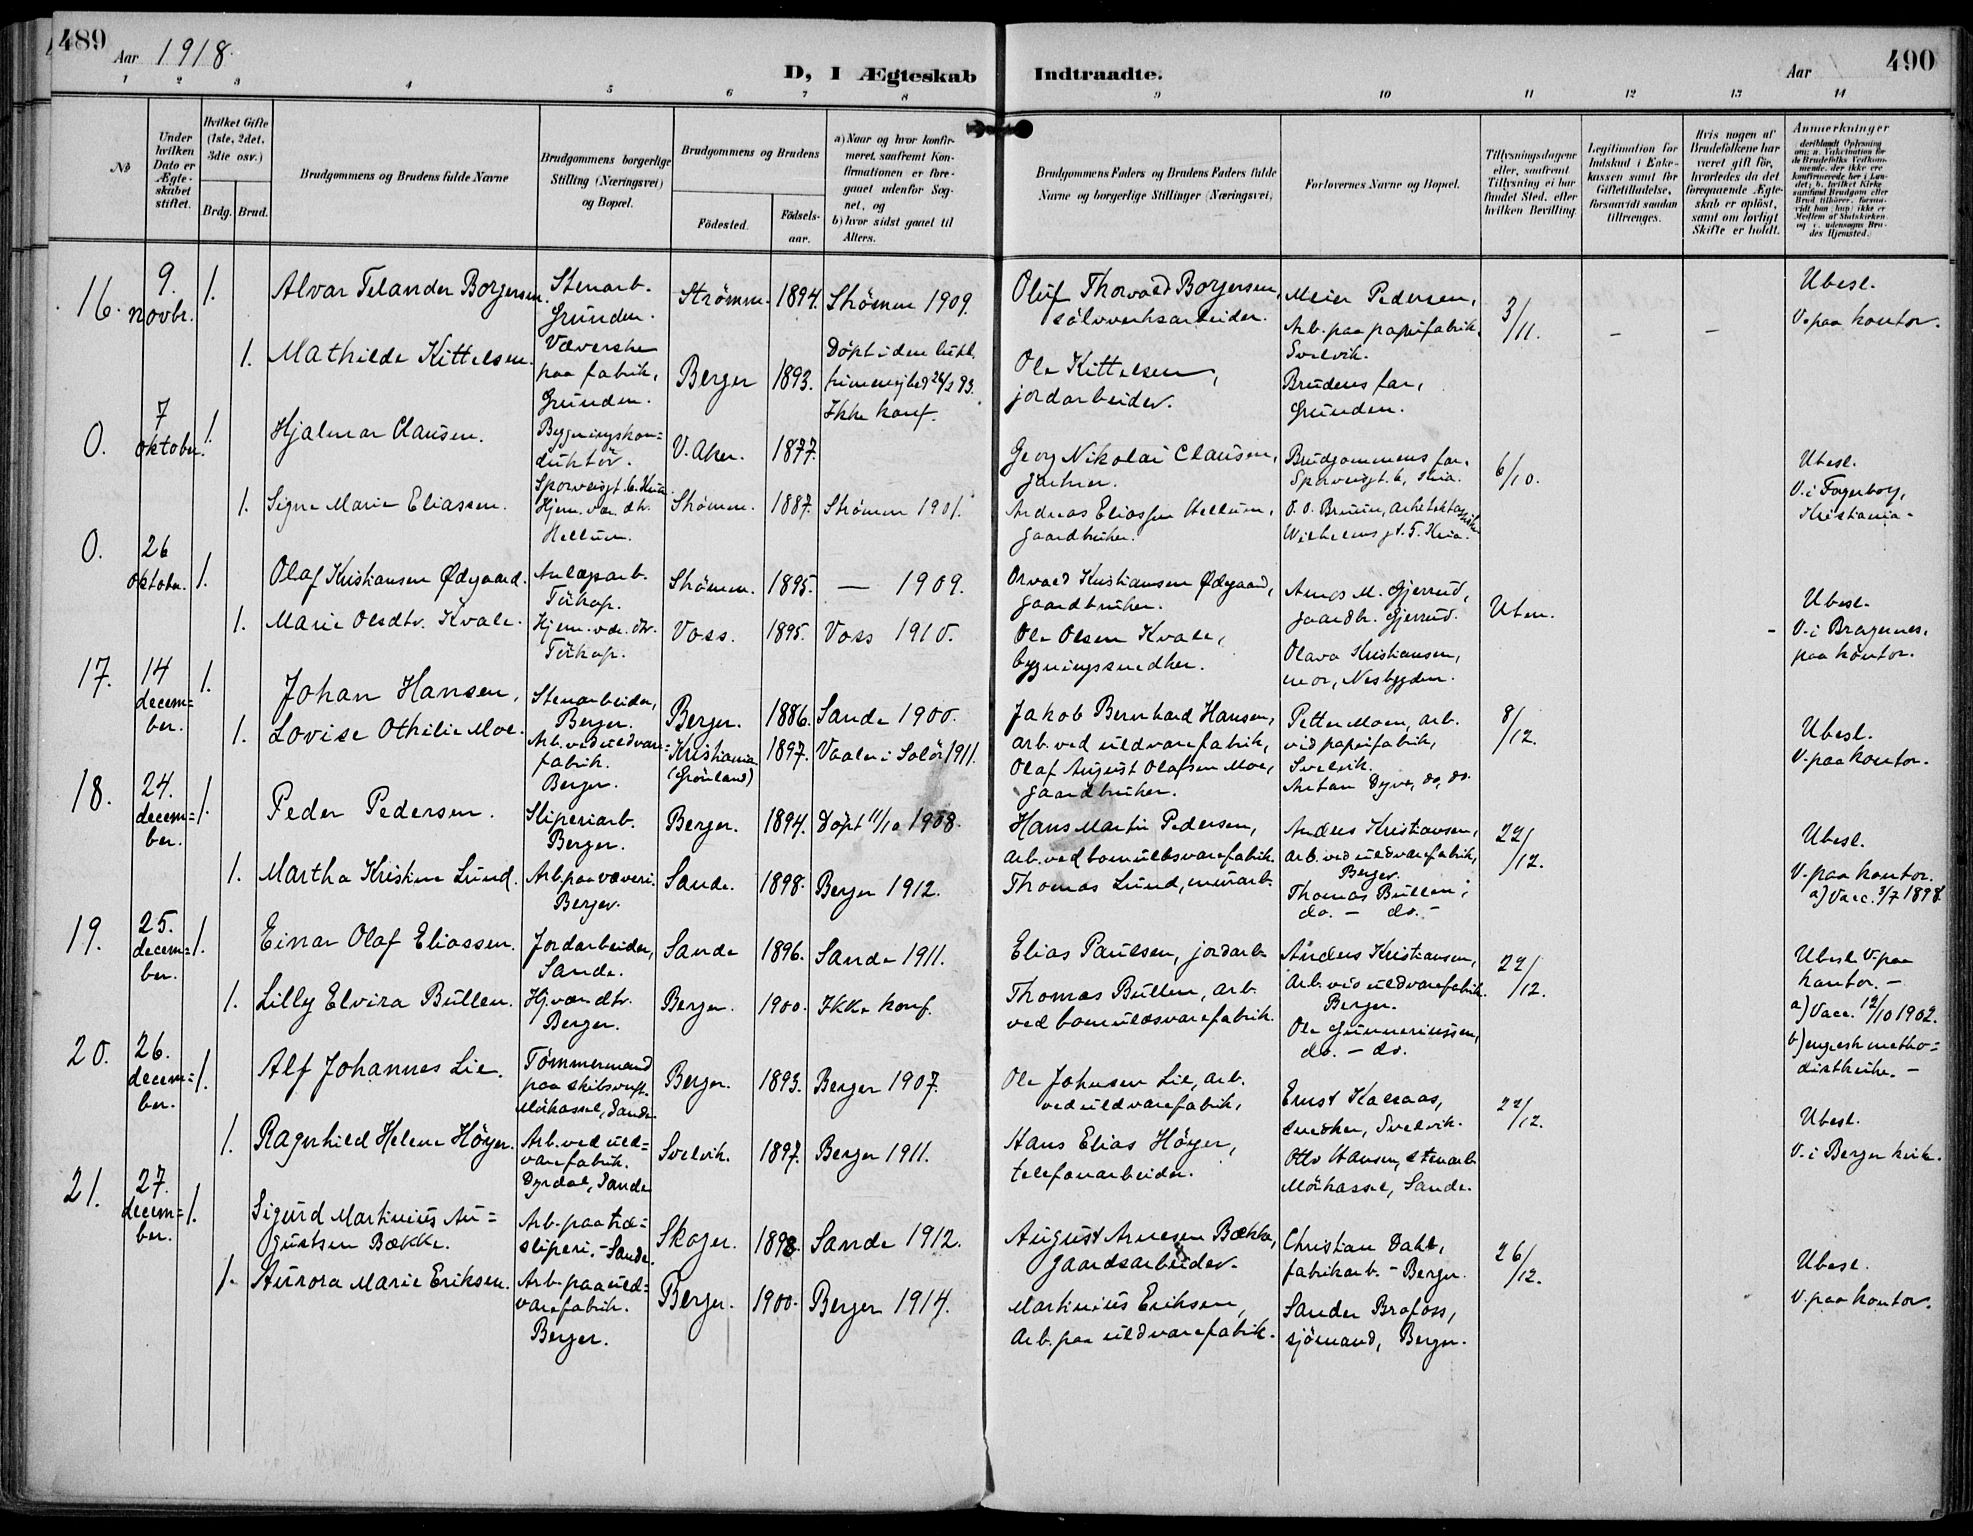 489 Aar 1918.
D, I Ægteskab Indtraadte.
Aar 490
1 2 3 4 5 6 7 8 9 10 11 12 13 14
No
Under hvilken Dato er Ægteskabet stiftet.
Hvilket Gifte (1ste, 2det, 3die osv.)
Brdg. Brud.
Brudgommens og Brudens fulde Navne
Brudgommens borgerlige Stilling (Næringsvei) og Bopæl.
Brudgommens og Brudens
Fødested. Fødselsaar.
a) Naar og hvor konfirmeret, saafremt Konfirmationen er foregaaet udenfor Sognet, og
b) hvor sidst gaaet til Alters.
Brudgommens Faders og Brudens Faders fulde Navne og borgerlige Stillinger (Næringsvei)
Forlovernes Navne og Bopæl.
Tillysningsdagene eller, saafremt Tillysning ei har fundet Sted, efter hvilken Bevilling.
Legitimation for Indskud i Enkekassen samt for Giftetilladelse, forsaavidt saadan tiltrænges.
Hvis nogen af Brudefolkene har været gift før, hvorledes da det foregaaende Ægteskab er opløst, samt om lovligt Skifte er holdt.
Anmerkninger
16. 9. novbr. 1. Alvar Telander Borgersen. Stenarb. Grunden. Strömm. 1894. Strömm 1909.
Oluf Thorvald Borgersen, sølvverksarbeider. Meier Pedersen, Arb. paa papirfabrik, Svelvik. 3/11. – – Ubesl. V. paa kontor.
1. Mathilde Kittelsen. Væverske paa fabrik, Grunden. Berger 1893. Døpt i den luth. frimenighed 26/2 93. Ikke konf.
Ole Kittelsen, jordarbeider. Brudens far, Grunden.
0. 7 oktober. 1. Hjalmar Clausen. Bygningskonduktör. Sporveisgt. 6. Kria. V. Aker. 1877.
Georg Nikolai Clausen, gartner. Brudgommens far, Sporveisgt. 6, Kria. 6/10. Ubesl. V. i Fagerborg, Kristiania.
1. Signe Marie Eliassen. Hjem. vær. dtr. Hellum. Strömm. 1887. Strömm 1901.
Andreas Eliassen Hellum, gaardbruker. O. O. Bruun, arkitekt Wilhelms gt. 5. Kria.
0. 26 oktober. 1. Olaf Kristiansen Ødegaard. Anlægsarb. Törkop. Strömm. 1895. – 1909.
Orvald Kristiansen Ødegaard, gaardbruker. M. Gjerrud, gaardbr. Gjerrud. Uten. Ubesl. V. i Bragernes. paa kontor.
1. Marie Olsdtr. Kvale. Hjem. vær. dtr. Törkop. Voss. 1895. Voss 1910.
Ole Olsen Kvale, bygningssnedker. Olava Kristiansen, mor, Nesbygden.
17. 14 december. 1. Johan Hansen, Stenarbeider, Berger. Berger. 1886. Sande 1900.
Jakob Bernhard Hansen, arb. ved uldvarefabrik, Petter Moen, arb. vid papirfabrik, Svelvik. 8/12. Ubesl. V. paa kontor.
1. Lovise Othilie Moe. Arb. ved uldvarefabrik. Berger. Kristiania (Grønland) 1897. Vaaler i Solör 1911.
Olaf August Olafsen Moe, gaardbruker. Anton Dyve, do, do.
18. 24. december. 1. Peder Pedersen. Sliperiarb. Berger. Berger. 1894. Døpt 11/10 1908.
Hans Martin Pedersen, arb. ved bomuldsvarefabrik. Anders Kristiansen, arb. ved uldvarefabrik, Berger. 22/12. Ubesl. V. paa kontor. a) Vacc. 3/7 1898.
1. Martha Kristine Lund. Arb. paa væveri. Berger. Sande. 1898. Berger 1912.
Thomas Lund, murarb. Thomas Bullen, do. – do. –
19. 25. december. 1. Einar Olaf Eliassen. Jordarbeider, Sande. Sande 1896. Sande 1911.
Elias Paulsen, jordarb. Anders Kristiansen, Arb. vid uldvarefabrik. Berger. 22/12. Ubesl. V. paa kontor. –
1. Lilly Elvira Bullen. Hj. vær. dtr. Berger. Berger. 1900. Ikke konf.
Thomas Bullen, arb. ved bomuldsvarefabrik. Ole Gunneriussen, do. – do. a) Vacc. 12/10 1902. b) engelsk methodistkirke. –
20. 26. december. 1. Alf Johannes Lie. Tömmermand paa skibsverft. Mörkassel, Sande Berger. 1893. Berger 1907.
Ole Johnsen Lie, arb. ved uldvarefabrik, Ernst Kaeraas, snedker, Svelvik. 22/12. Ubesl. V. i Berger kirke.
1. Ragnhild Helene Höyer. Arb. ved uldvarefabrik. Dyrdal, Sande Svelvik. 1897. Berger 1911.
Hans Elias Höyer, telefonarbeider. Otto Hansen, stenarb. Mörkassel, Sande.
21. 27. december. 1. Sigurd Martinius Augustsen Bække. Arb. paa træsliperi. – Sande. Skoger. 1898. Sande 1912.
August Arnesen Bække, gaardsarbeider. Christian Dahl, fabrikarb. – Berger. 26/12. Ubesl. V. paa kontor.
1. Aurora Marie Eriksen. Arb. paa uldvarefabrik. Berger. Berger. 1900. Berger 1914.
Martinius Eriksen, Arb. paa uldvarefabrik. Sander Brafoss, sjömand, Berger.